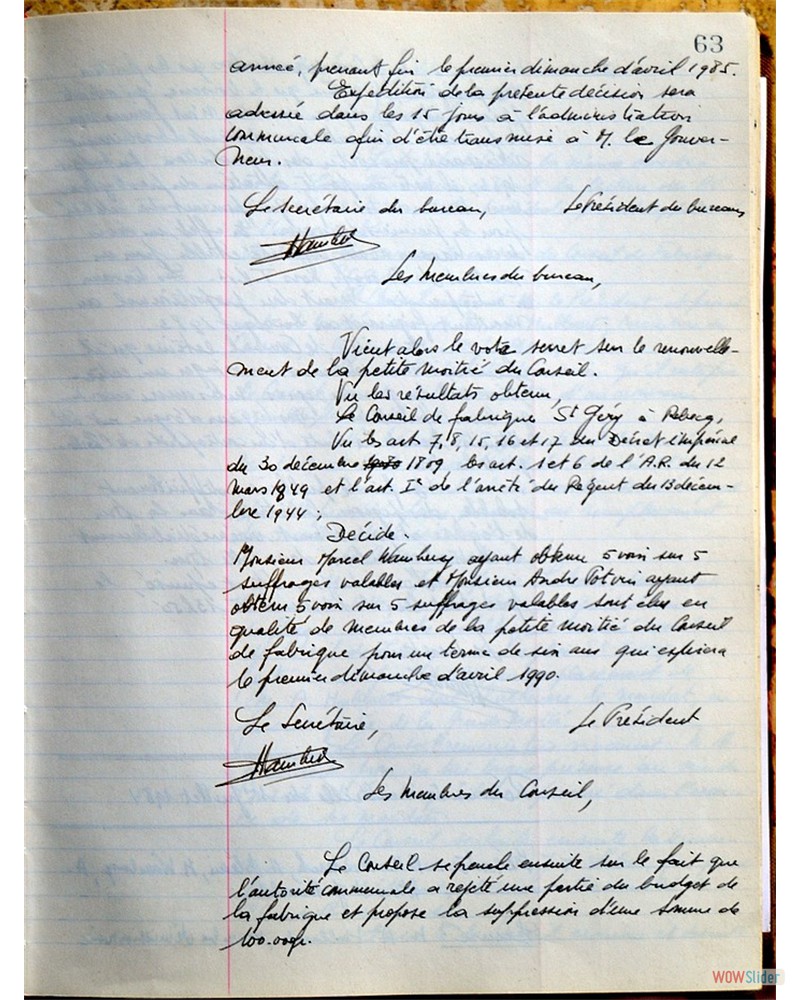 63
année, prenant fin le premier dimanche d'avril 1985.
Expédition de la présente décision sera
adressée dans les 15 jours à l'administration
communale afin d'être transmise à M. le Gouver-
neur.
Le secrétaire du bureau, Le Président du bureau
Les Membres du bureau,
Vient alors le vote secret sur le renouvelle-
ment de la petite moitié du Conseil.
Vu les résultats obtenu,
Le Conseil de fabrique St Géry à Rebecq,
Vu les art 7, 8, 15, 16 et 17 du Décret impérial
du 30 décembre 1809, les art. 1 et 6 de l'A.R. du 12
mars 1849 et l'art. Ier de l'arrêté du Régent du 13 décem-
bre 1944 ;
Décide.
Monsieur Marcel ayant obtenu 5 voix sur 5
suffrages valables et Monsieur André Potvin ayant
obtenu 5 voix sur 5 suffrages valables sont élus en
qualité de membres de la petite moitié du Conseil
de fabrique pour un terme de six ans qui expirera
le premier dimanche d'avril 1990.
Le Secrétaire, Le Président
Les membres du Conseil,
Le Conseil se penche ensuite sur le fait que
l'autorité communale a rejeté une partie du budget de
la fabrique et propose la suppression d'une somme de
100.000fr.
WOWSlider